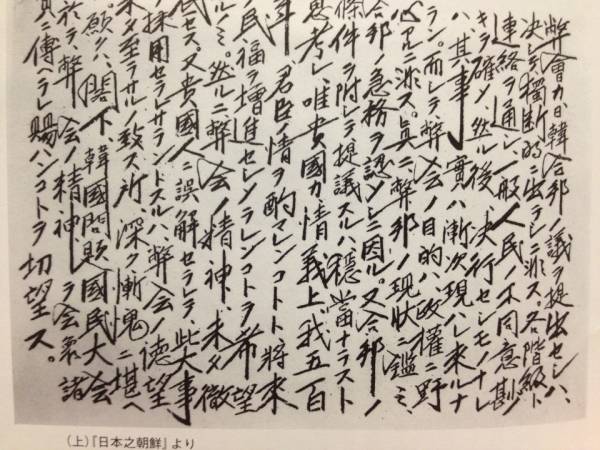 弊會カ日韓合邦ノ議ヲ提出セシハ、
決シテ獨斷的ニ出ラシニ非ス。各階級ト
連絡ヲ通シ、一般人民ノ不同意尠
キヲ確メ、然ル後、決行セシモノナレ
ハ、其事實ハ漸次現ハレ来ルナ
ラン。而シテ、弊会ノ目的ハ、政權ニ野
心アルニ非ス。眞ニ弊邦ノ現状ニ鑑ミ、
合邦ノ急務ヲ認メシニ因ル。又合邦ノ
條件ヲ附シテ提議スルハ、穏當ナラスト
思考シ、唯貴國カ情義上、我五百
年ノ君臣ノ情ヲ酌マレンコトト、將来
ノ民福ヲ増進セシメラレンコトヲ希望
ルノミ。然ルニ弊会ノ精神、未タ徹
底セス。又貴國人ニ誤解セラレテ、此大事
採用セラレサラントスルハ、弊会ノ徳望
未タ至ラサルノ致ス所、深ク慚愧ニ堪ヘ
。願クハ、閣下、韓國問題國民大会
於テ、弊会ノ精神ヲ会衆諸
員ニ傳ヘラレ賜ハンコトヲ切望ス。
(上)『日本之朝鮮』より